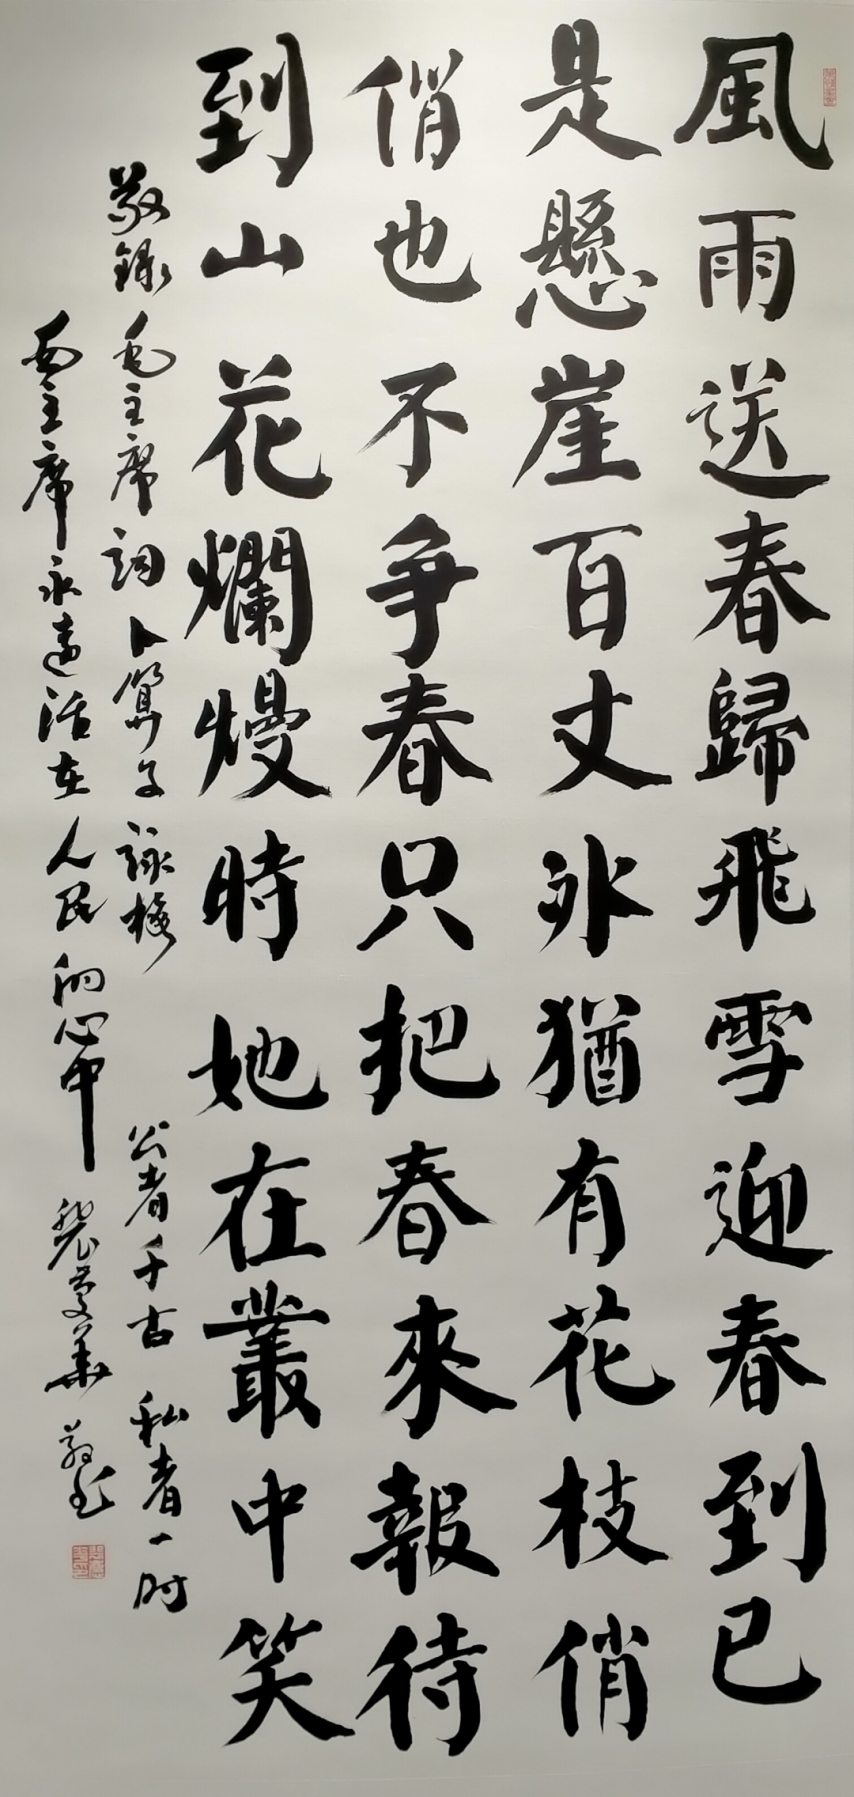 風雨送春歸飛雪迎春到已
是懸崖百丈冰猶有花枝俏
俏也不爭春只把春來報待
到山花爛熳時她在叢中笑
敬錄毛主席詞卜算子詠梅 公者千古 私者一时
毛主席永遠活在人民的心中 裴曼華 敬書